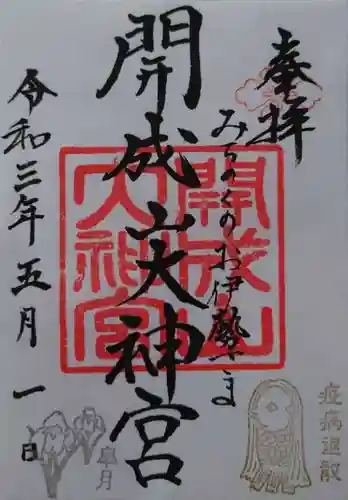 奉拝
みちのくのお伊勢さま
開成山大神宮
令和三年五月一日
開成山
大神宮
疫病退散
皐月